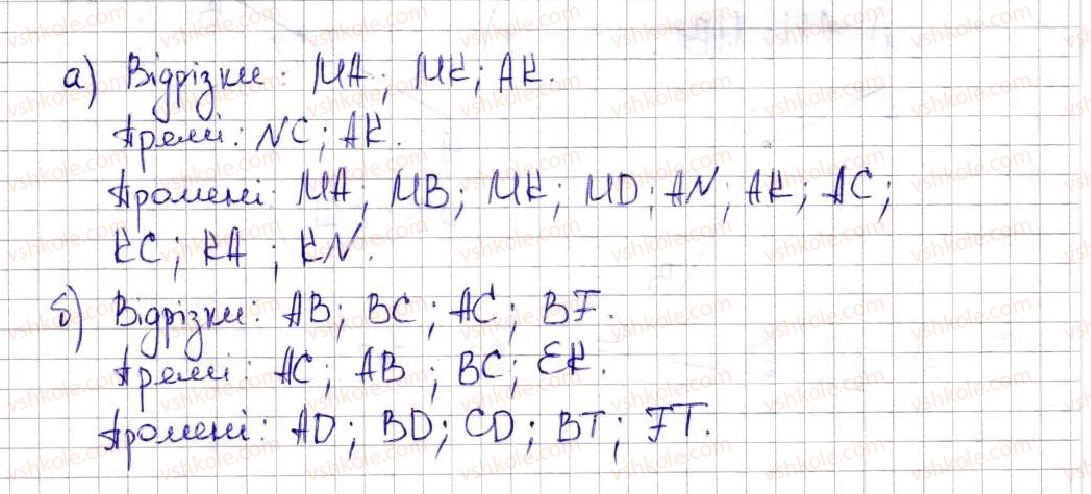 а) Відрізки: MA; MK; AK.
Прямі: NC; AK.
Промені: MA; MB; MK; MD; AN; AK; AC;
KC; KA; KN.
б) Відрізки: AB; BC; AC; BF.
Прямі: AC; AB; BC; EK.
Промені: AD; BD; CD; BT; FT.